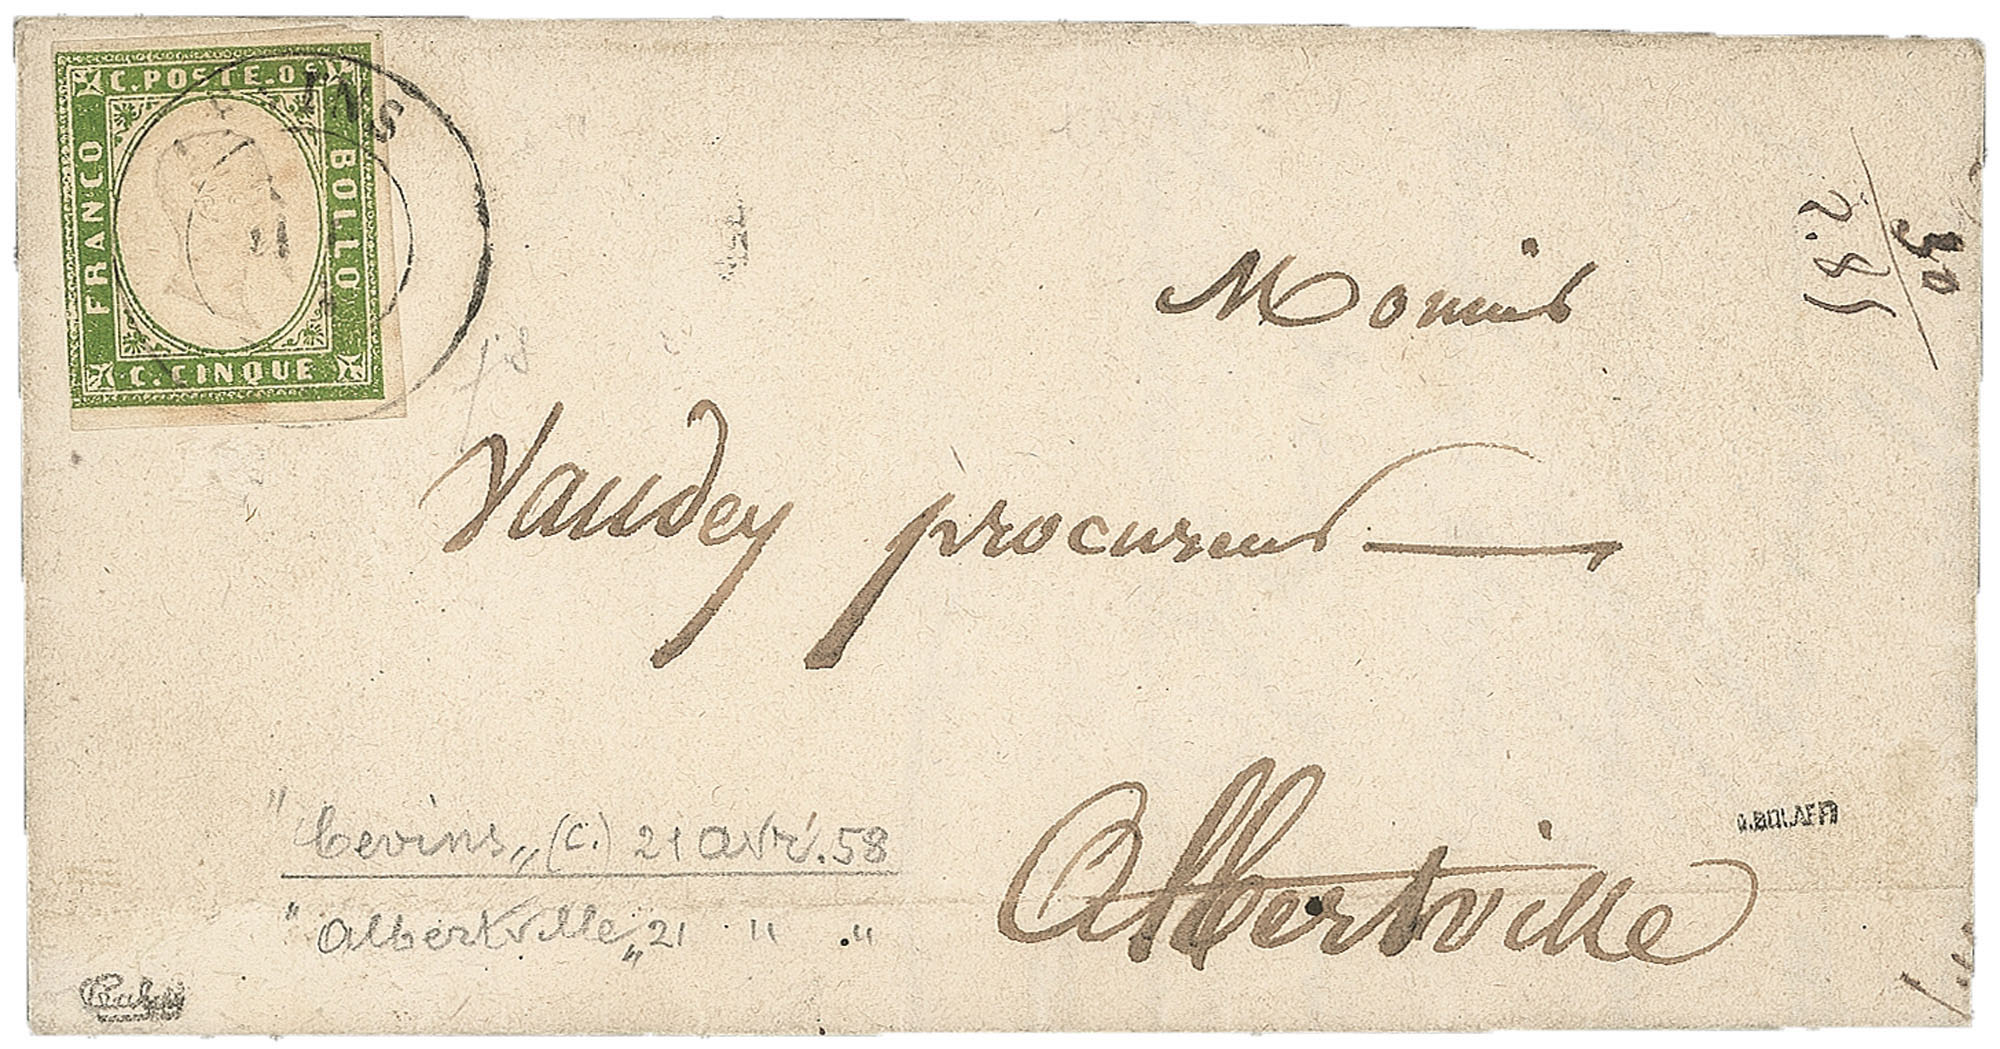 C. POSTE. 05
FRANCO
BOLLO
C. CINQUE
21
Vaudey procureur
Albertville
"Cevins„ (c.) 21 avri. 58
"Albertville„ 21 " . "
A. BOLAFFI